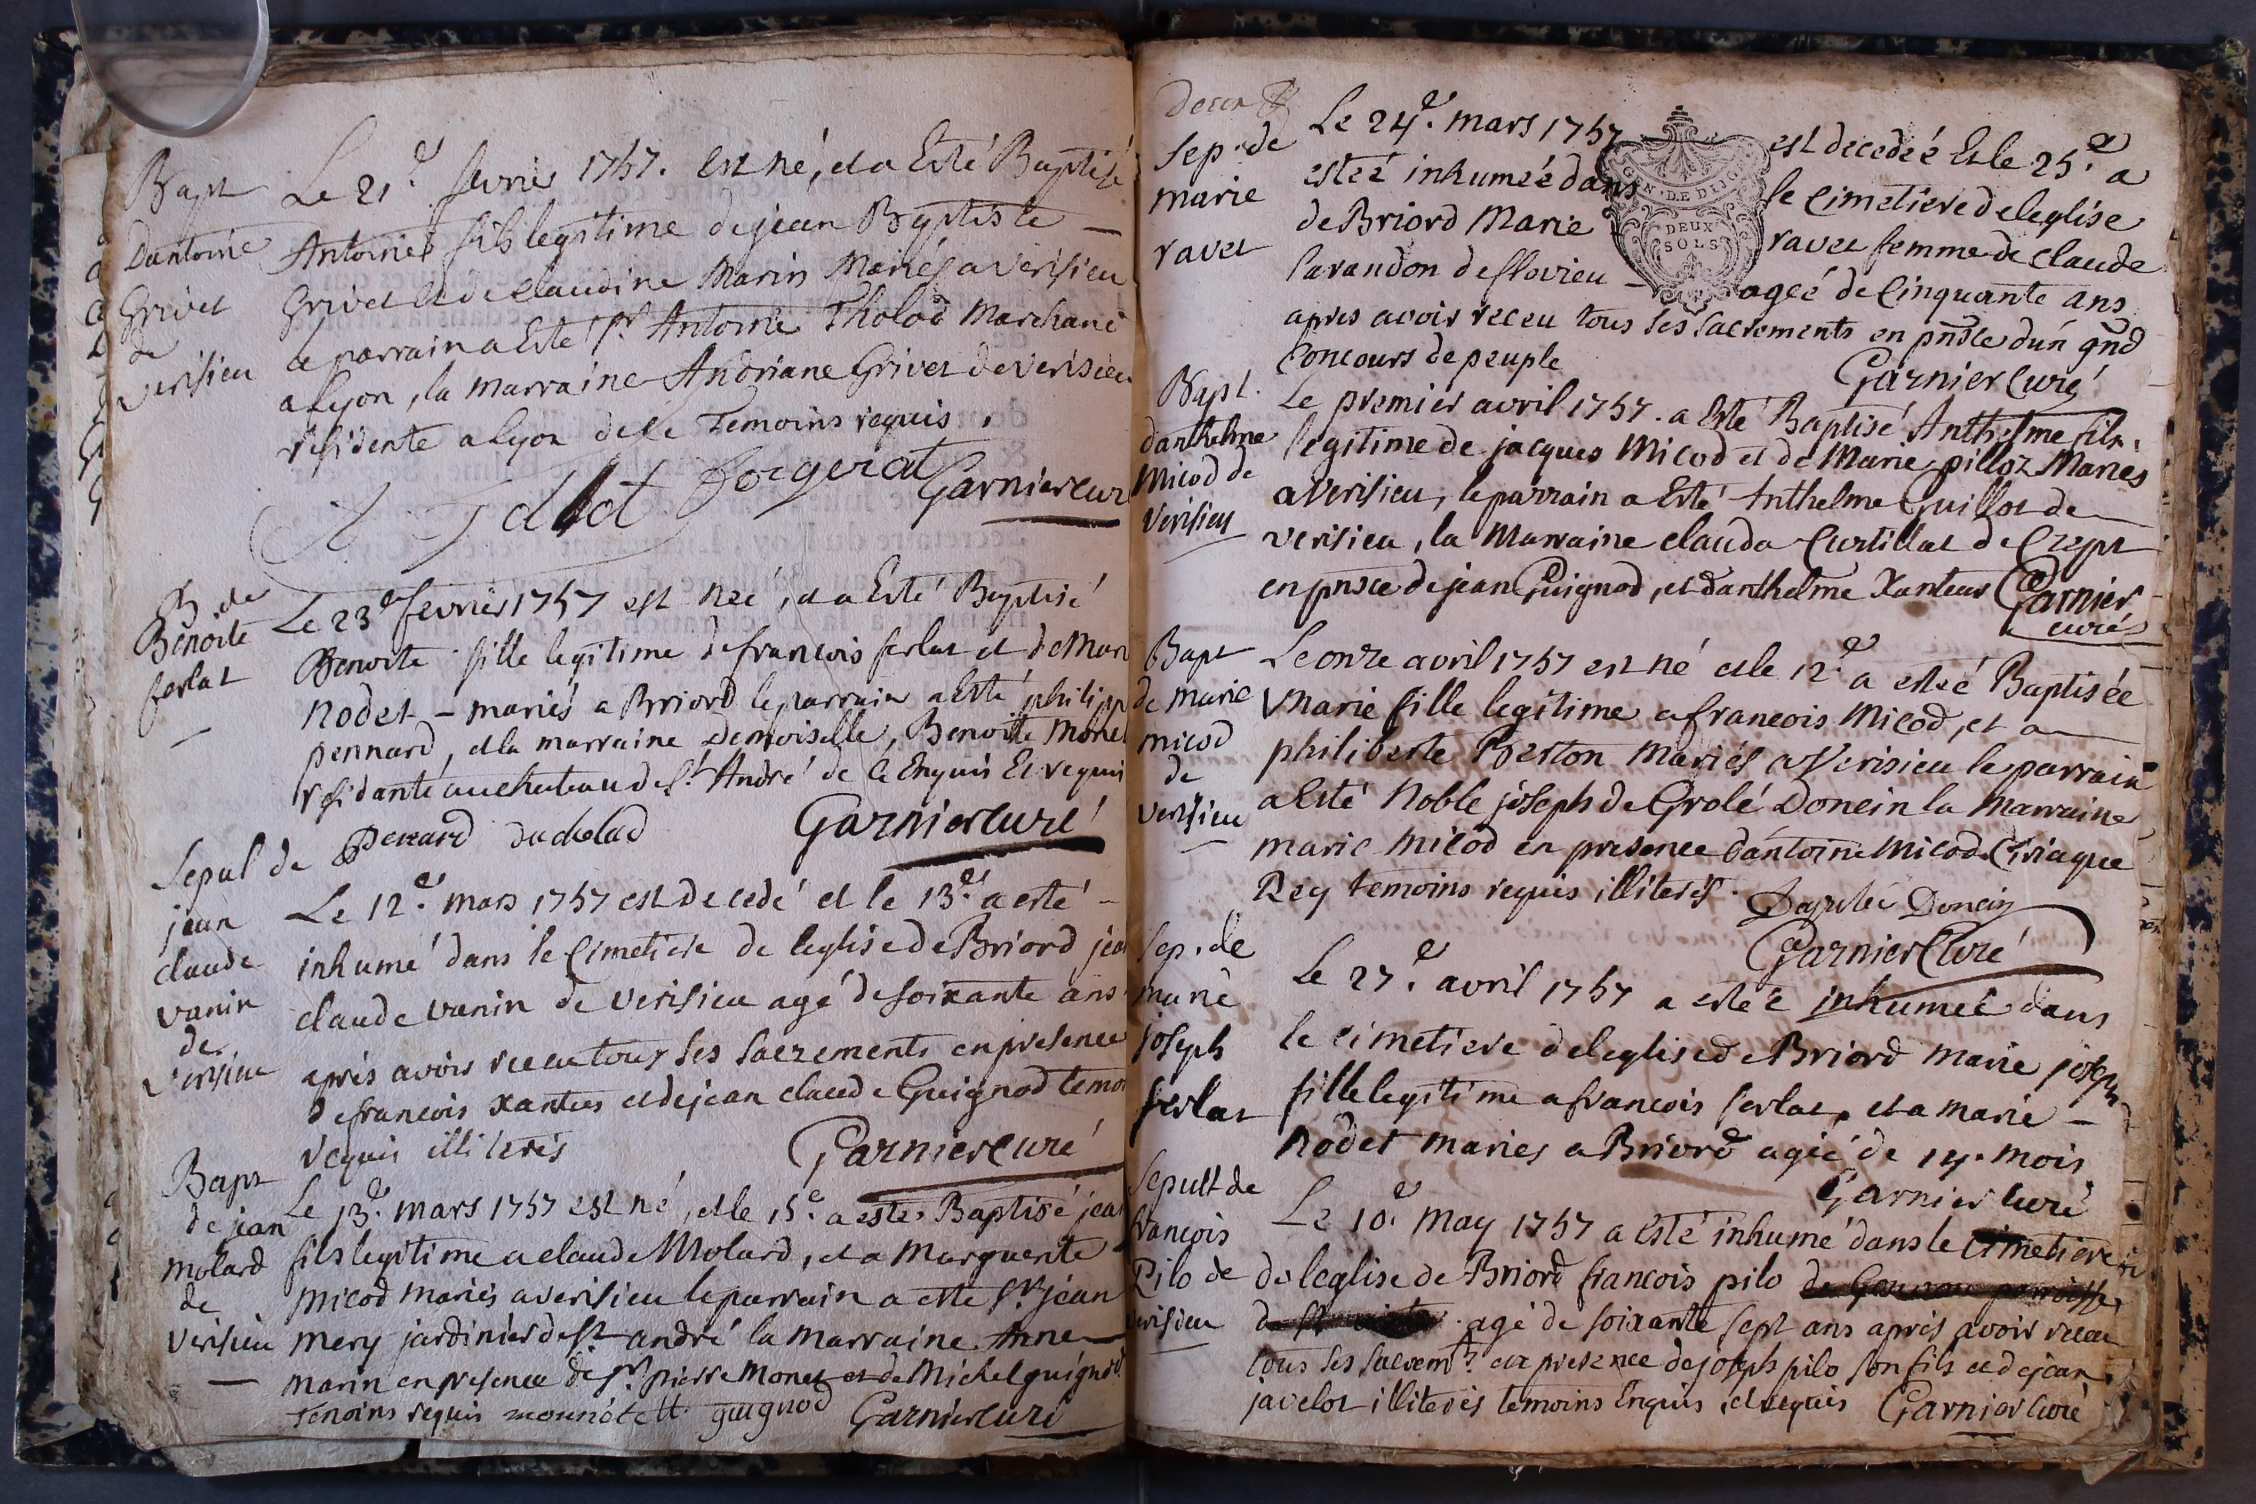 Bapt
Dantoine
Grivet
de
verisieu
Le 21.e fevrier 1757. est né, et a Esté Baptisé
Antoine fils legitime de jean Baptiste —
Grivet et de claudine Marin Mariés a verisieu
le parrain a Esté sr. Antoine Tholod Marchand
a Lyon, la marraine Andriane Grivet de verisieu
residente a Lyon de ce Temoins requis.
forgerat Garnier cur
B. de
Benoite
ferlat
—
Le 23e fevrier 1757 est neé, et a Esté Baptisé
Benoite fille legitime de francois ferlat et de Mari
Nodet – mariés a Briord le parrain a Esté philipp
pennard, et la marraine Demoiselle, Benoitte Monet
residante au chateau de St. André de ce Enquis Et requis
Penard Garnier curé
Sepul de
jean
claude
vanin
de
verisieu
Le 12.e mars 1757 est decedé et le 13.e a esté –
inhumé dans le Cimetiere de leglise de Briord jea
claude vanin de verisieu agé de soixante ans
aprés avoir receu tous ses sacrements en presence
de francois xanteus et de jean claude Guignod temo
requis illiterés Garnier curé
Bapt
de jean
molard
de
verisieu
—
Le 13.e mars 1757 est né, et le 15.e a esté Baptisé jean
fils legitime a claude Molard, et a Marguerite
micod mariés a verisieu le parrain a esté sr. jean
mery jardinier de st andré la marraine Anne —
marin en presence de sr. pierre Monet et de Michel guignod
Temoins requis guignod Garnier curé
Sep. de
marie
ravet
Le 24.e mars 1757 est decedeé Et le 25.e a
esteé inhumeé dans le Cimetiere de leglise
de Briord Marie ravet femme de claude
Savandon de flovieu – ageé de Cinquante ans
apres avoir receu tous ses sacrements en pnsce dún gnd
Concours de peuple Garnier Curé
GEN. DE DIJON
DEUX
SOLS
Bapt.
danthelme
Micod de
verisieu
Le premier avril 1757. a Esté Baptisé Anthelme fils
legitime de jacques Micod et de Marie pilloz Mariés
a verisieu, le parrain a Esté Anthelme Guillot de —
verisieu, la Marraine clauda Curtillat de Crept
en pnsce de jean Guignod, et danthelme Xanteus Garnier
curé
Bapt
de marie
micod
de
verisieu
—
Le onze avril 1757 est né et le 12.e a esteé Baptisée
Marie fille legitime a francois Micod, et a —
philiberte Berton Mariés a Verisieu le parrain
a Esté Noble joseph de Grolé Doncin la Marraine
marie Micod en presence dántoine Micod Ciriaque
Rey temoins requis illiterés. Doncin
Garnier Curé
Sep. de
marie
joseph
ferlat
Le 27.e avril 1757 a esteé inhumeé dans
le cimetiere de leglise de Briord marie joseph
fille legitime a francois ferlat, et a marie —
Nodet mariés a Briord ageé de 14. mois
Garnier Curé
Sepult de
francois
Pilo de
verisieu
—
Le 10.e May 1757 a Esté inhumé dans le Cimetiere
de leglise de Briord francois pilo
agé de soixante sept ans aprés avoir receu
tous ses sacremts. en presence de joseph pilo son fils et de jean
javelot illiterés temoins Enquis, et requis Garnier Curé